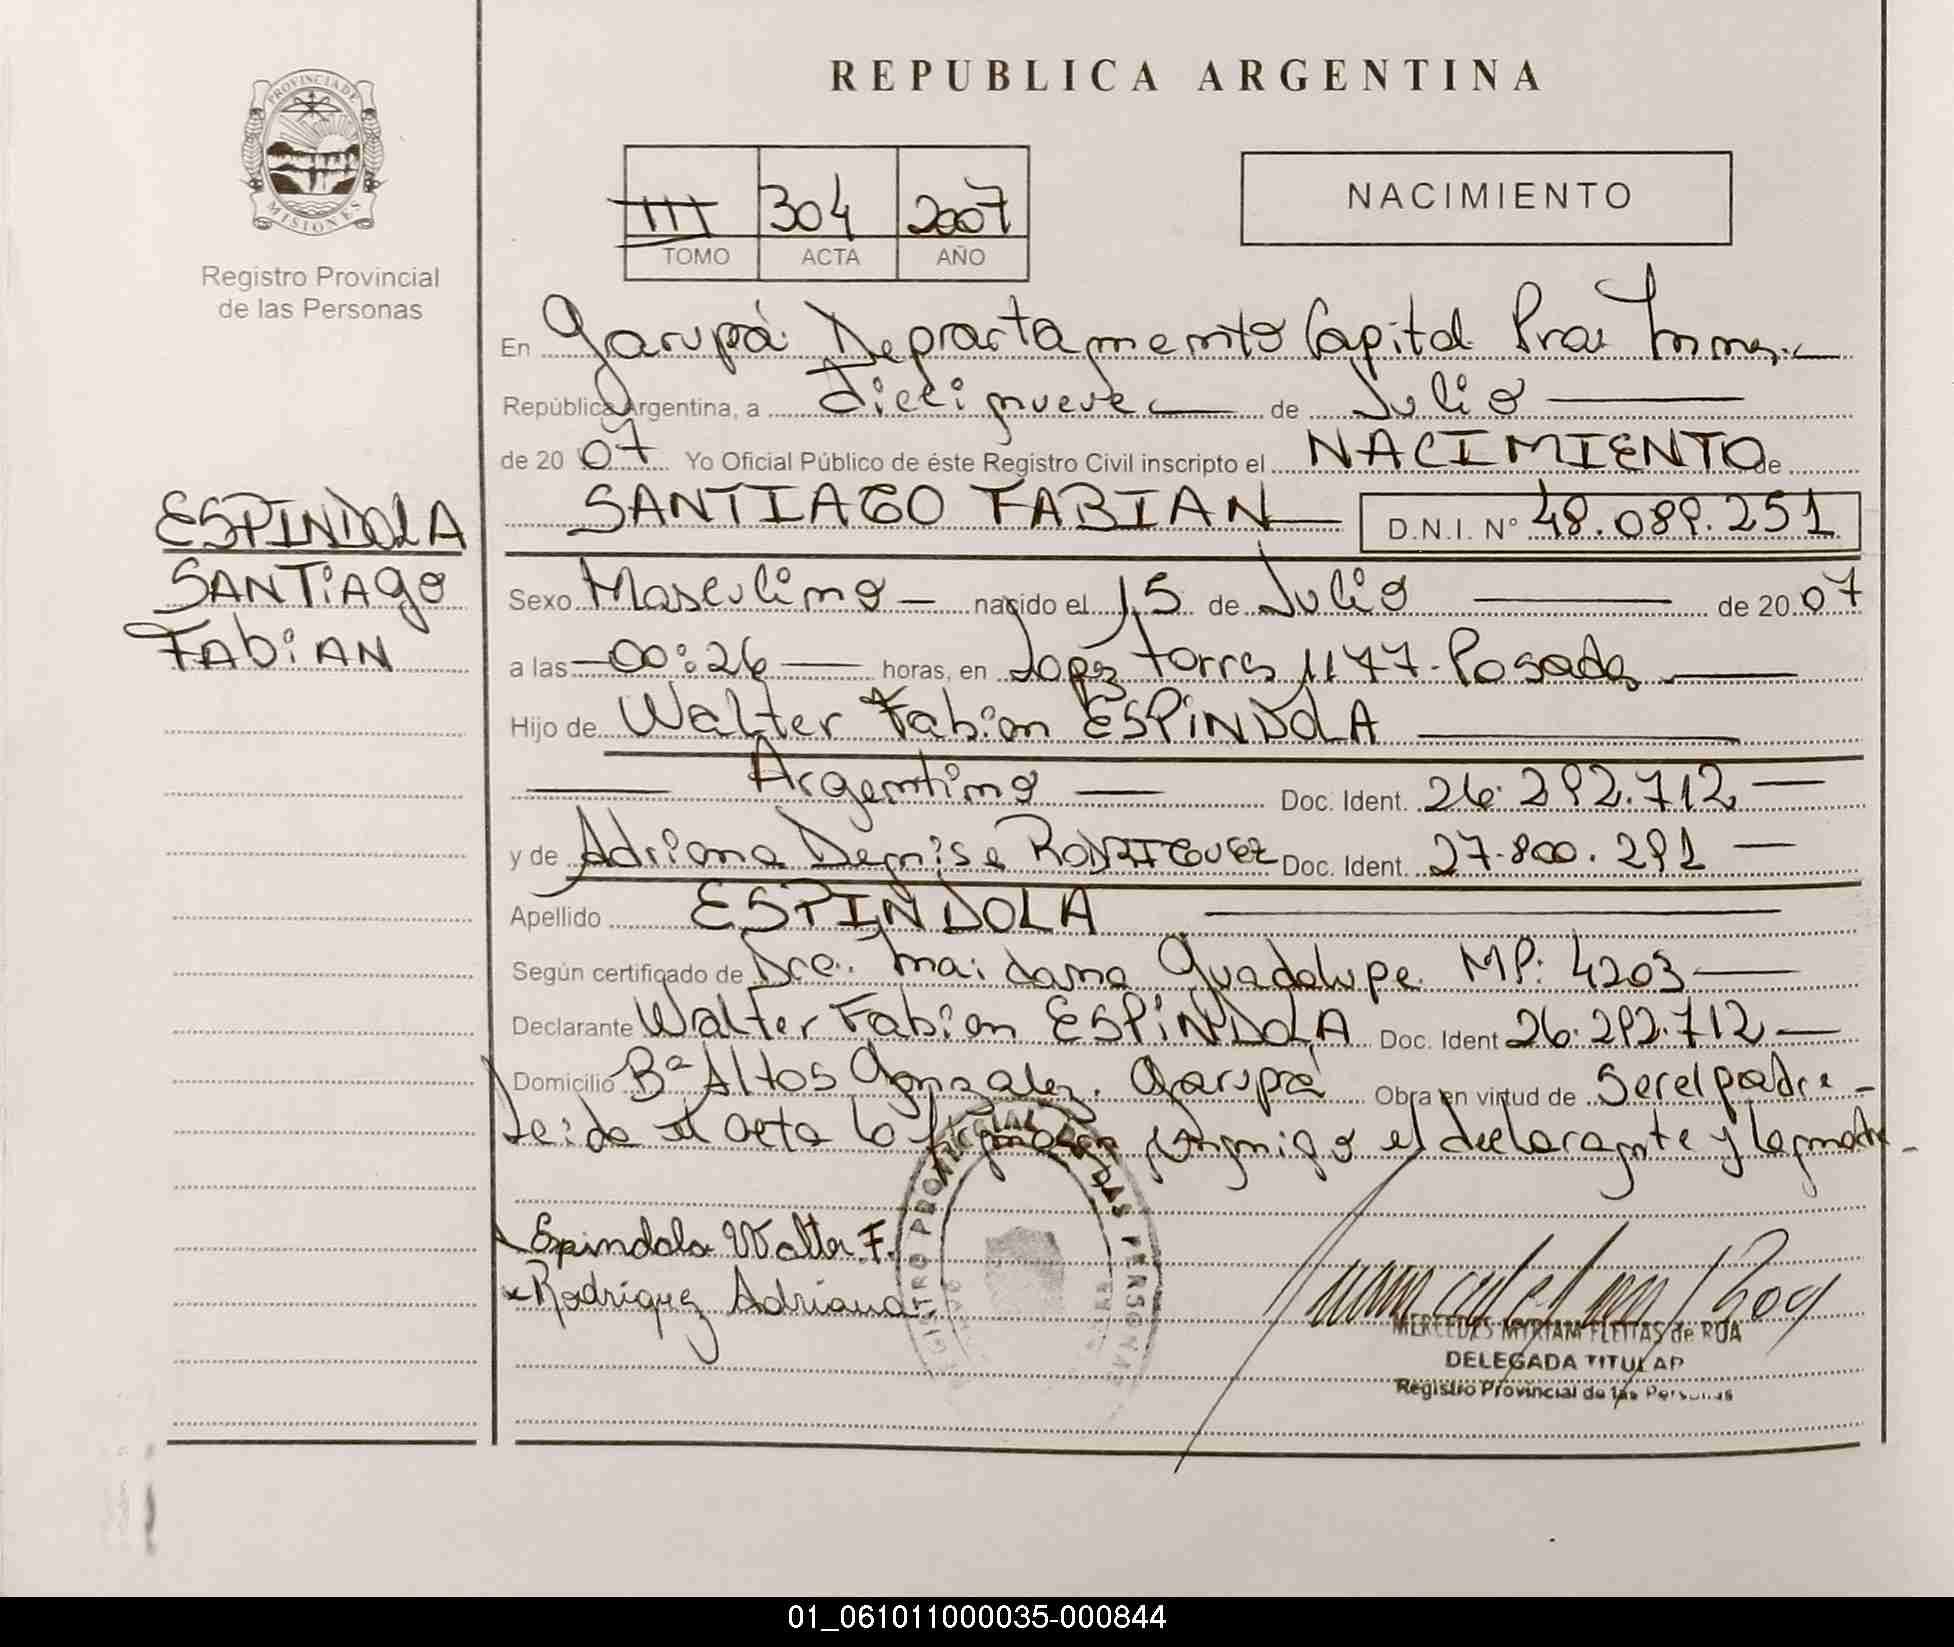 REPUBLICA ARGENTINA
PROVINCIA DE
MISIONES
Registro Provincial
de las Personas
III 304 2007
TOMO ACTA AÑO
NACIMIENTO
En Garupá Departamento Capital Pcia Mnes.
República Argentina, a Diecinueve de Julio
de 20 07 Yo Oficial Público de éste Registro Civil inscripto el NACIMIENTO de
SANTIAGO FABIAN D.N.I. N° 48.089.251
ESPINDOLA
SANTiAgo
FAbiAN
Sexo Masculino nacido el 15 de Julio de 20 07
a las 00:26 horas, en Lopez Torres 1177 - Posadas
Hijo de Walter Fabian ESPiNDOLA
Argentino Doc. Ident. 26.292.712
y de Adriana Denise RODRIGUEZ Doc. Ident. 27.800.291
Apellido ESPINDOLA
Según certificado de Dra. Maidana Guadalupe MP: 4203
Declarante Walter Fabian ESPiNDOLA Doc. Ident 26.292.712
Domicilio Bº Altos Gonzalez. Garupá Obra en virtud de Ser el padre
Leida el acta la firman conmigo el declarante y la madre
Espindola Walter F.
x Rodriguez Adriana
MERCEDES MYRIAM FLEITAS de RUA
DELEGADA TITULAR
Registro Provincial de las Personas
01_061011000035-000844